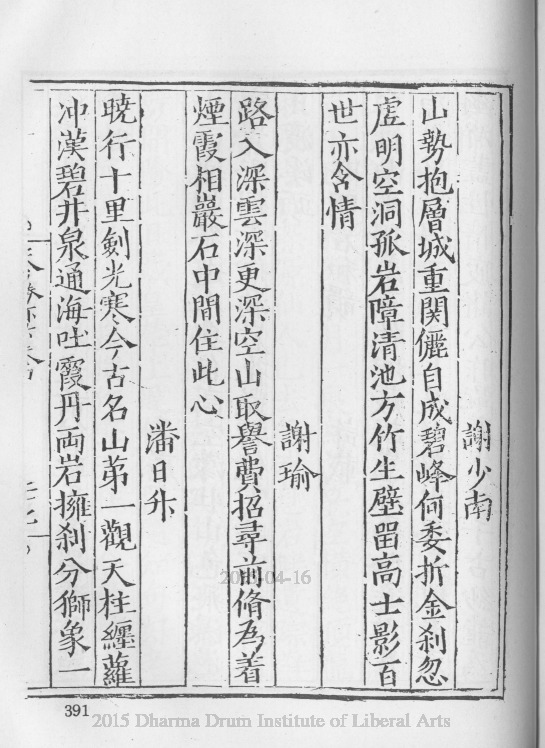 謝少南
山勢抱層城重関儷自成碧峰何委折金刹忽
虗明空洞孤岩障清池方竹生壁畱高士影百
世亦含情
謝瑜
路入深雲深更深空山取譽費招尋前脩為着
煙霞相巖石中間住此心
潘日升
曉行十里劍光寒今古名山苐一觀天柱纒蘿
冲漢碧井泉通海吐霞丹両岩擁刹分獅象一
391
2015 Dharma Drum Institute of Liberal Arts